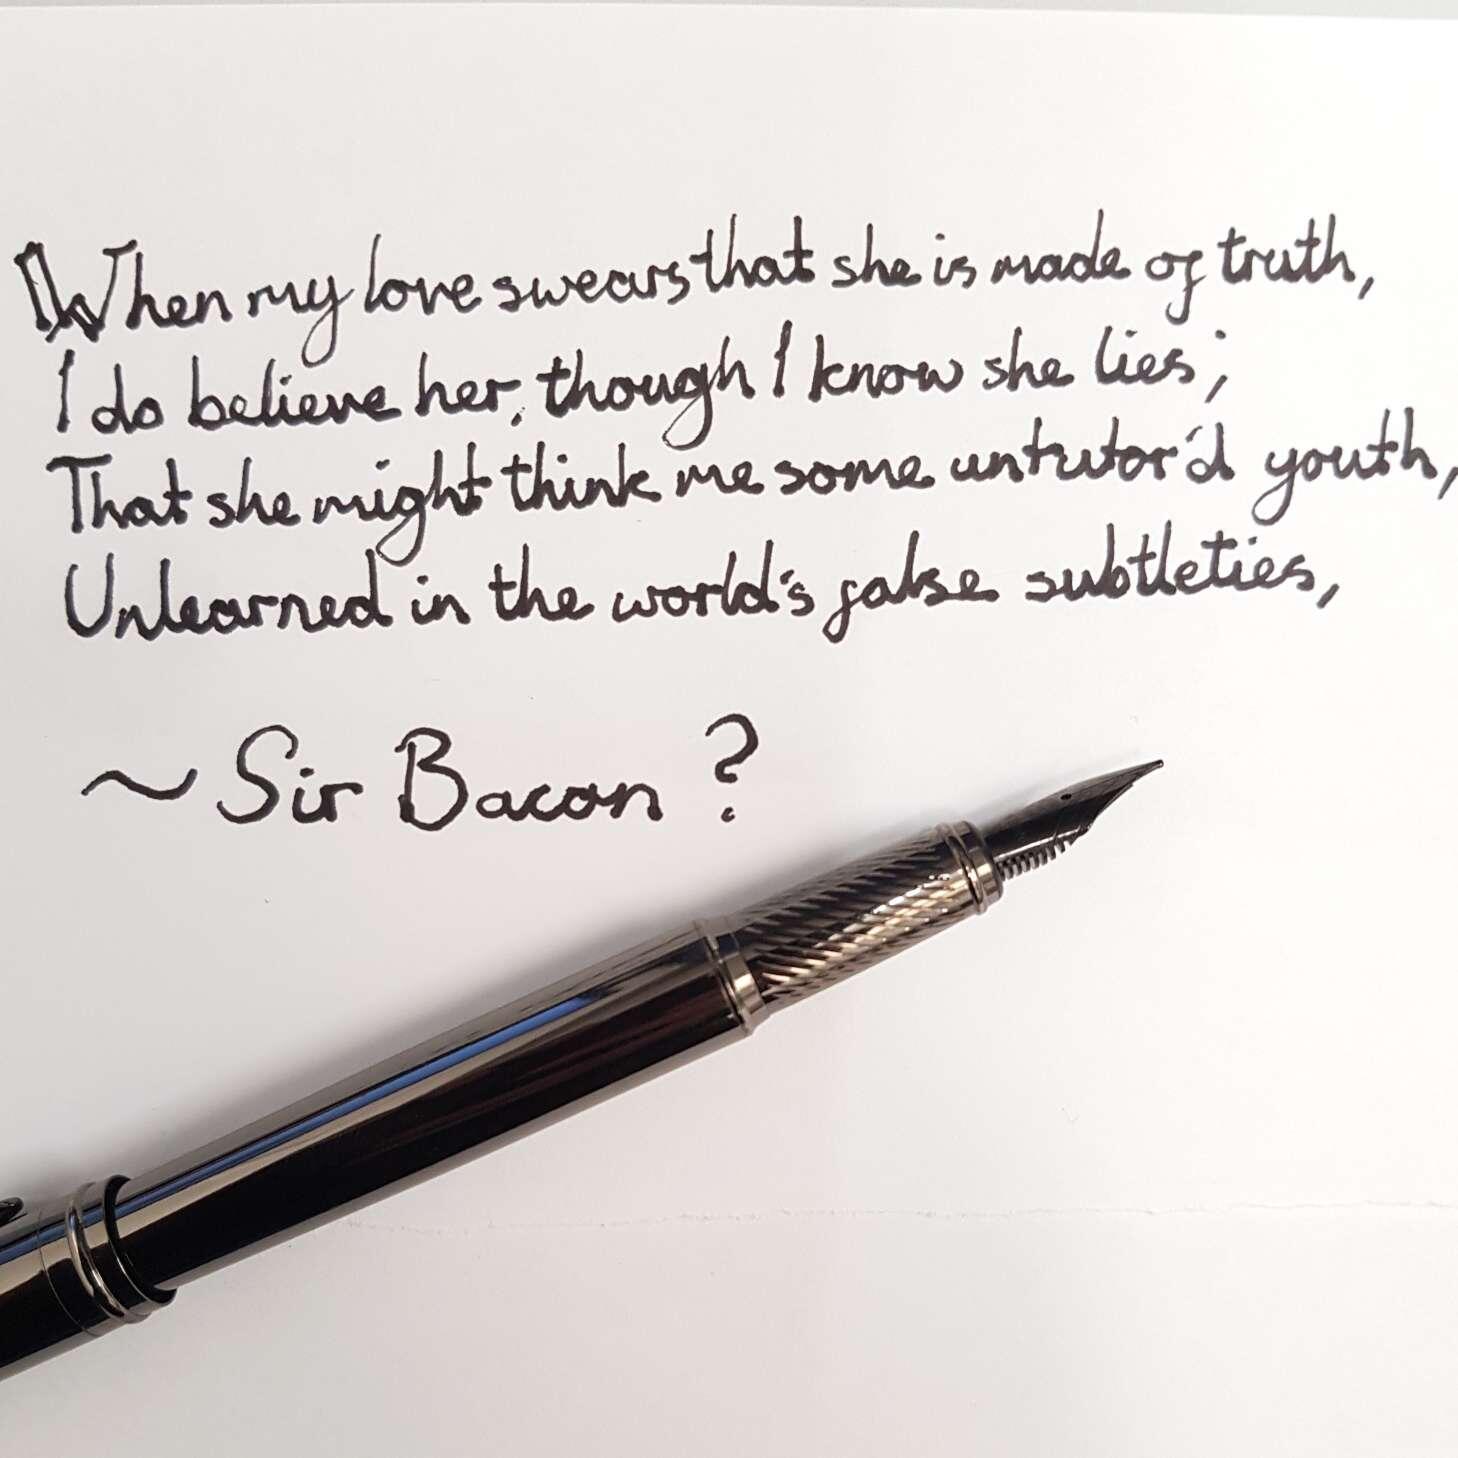 When my love swears that she is made of truth,
I do believe her, though I know she lies;
That she might think me some untutor'd youth,
Unlearned in the world's false subtleties,
~ Sir Bacon ?